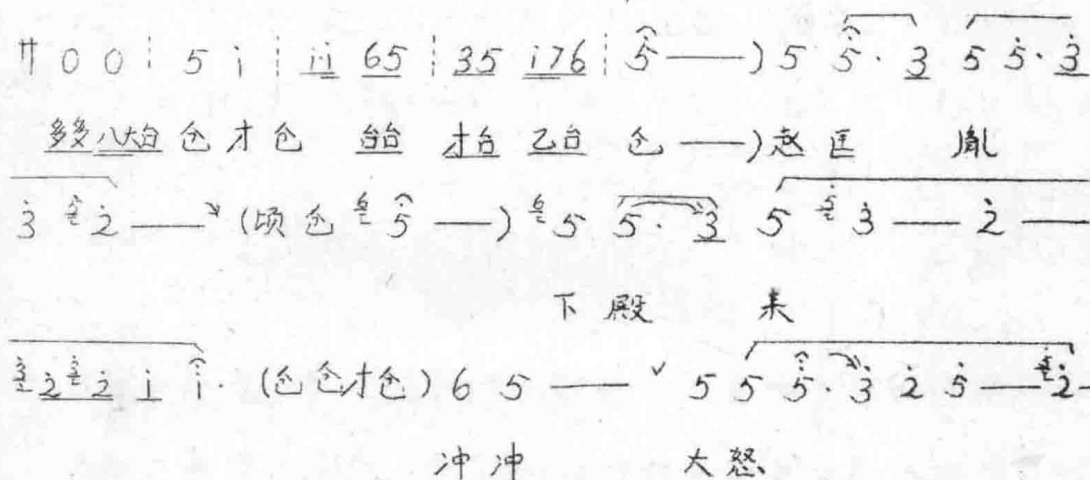 サ 0 0 ┆ 5 i ┆ ii 65 ┆ 35 i76 ┆ 5 ——) 5 5· 3 5 5· 3
多多 八大台 仓 才 仓 台台 才台 乙台 仓 ——) 赵 匡 胤
3 2 —— (顷 仓 5 ——) 5 5· 3 5 3 —— 2 ——
下 殿 来
2 2 i i· (仓 仓 才 仓) 6 5 —— ˇ 5 5 5· 3 2 5 —— 2 —
冲 冲 大 怒